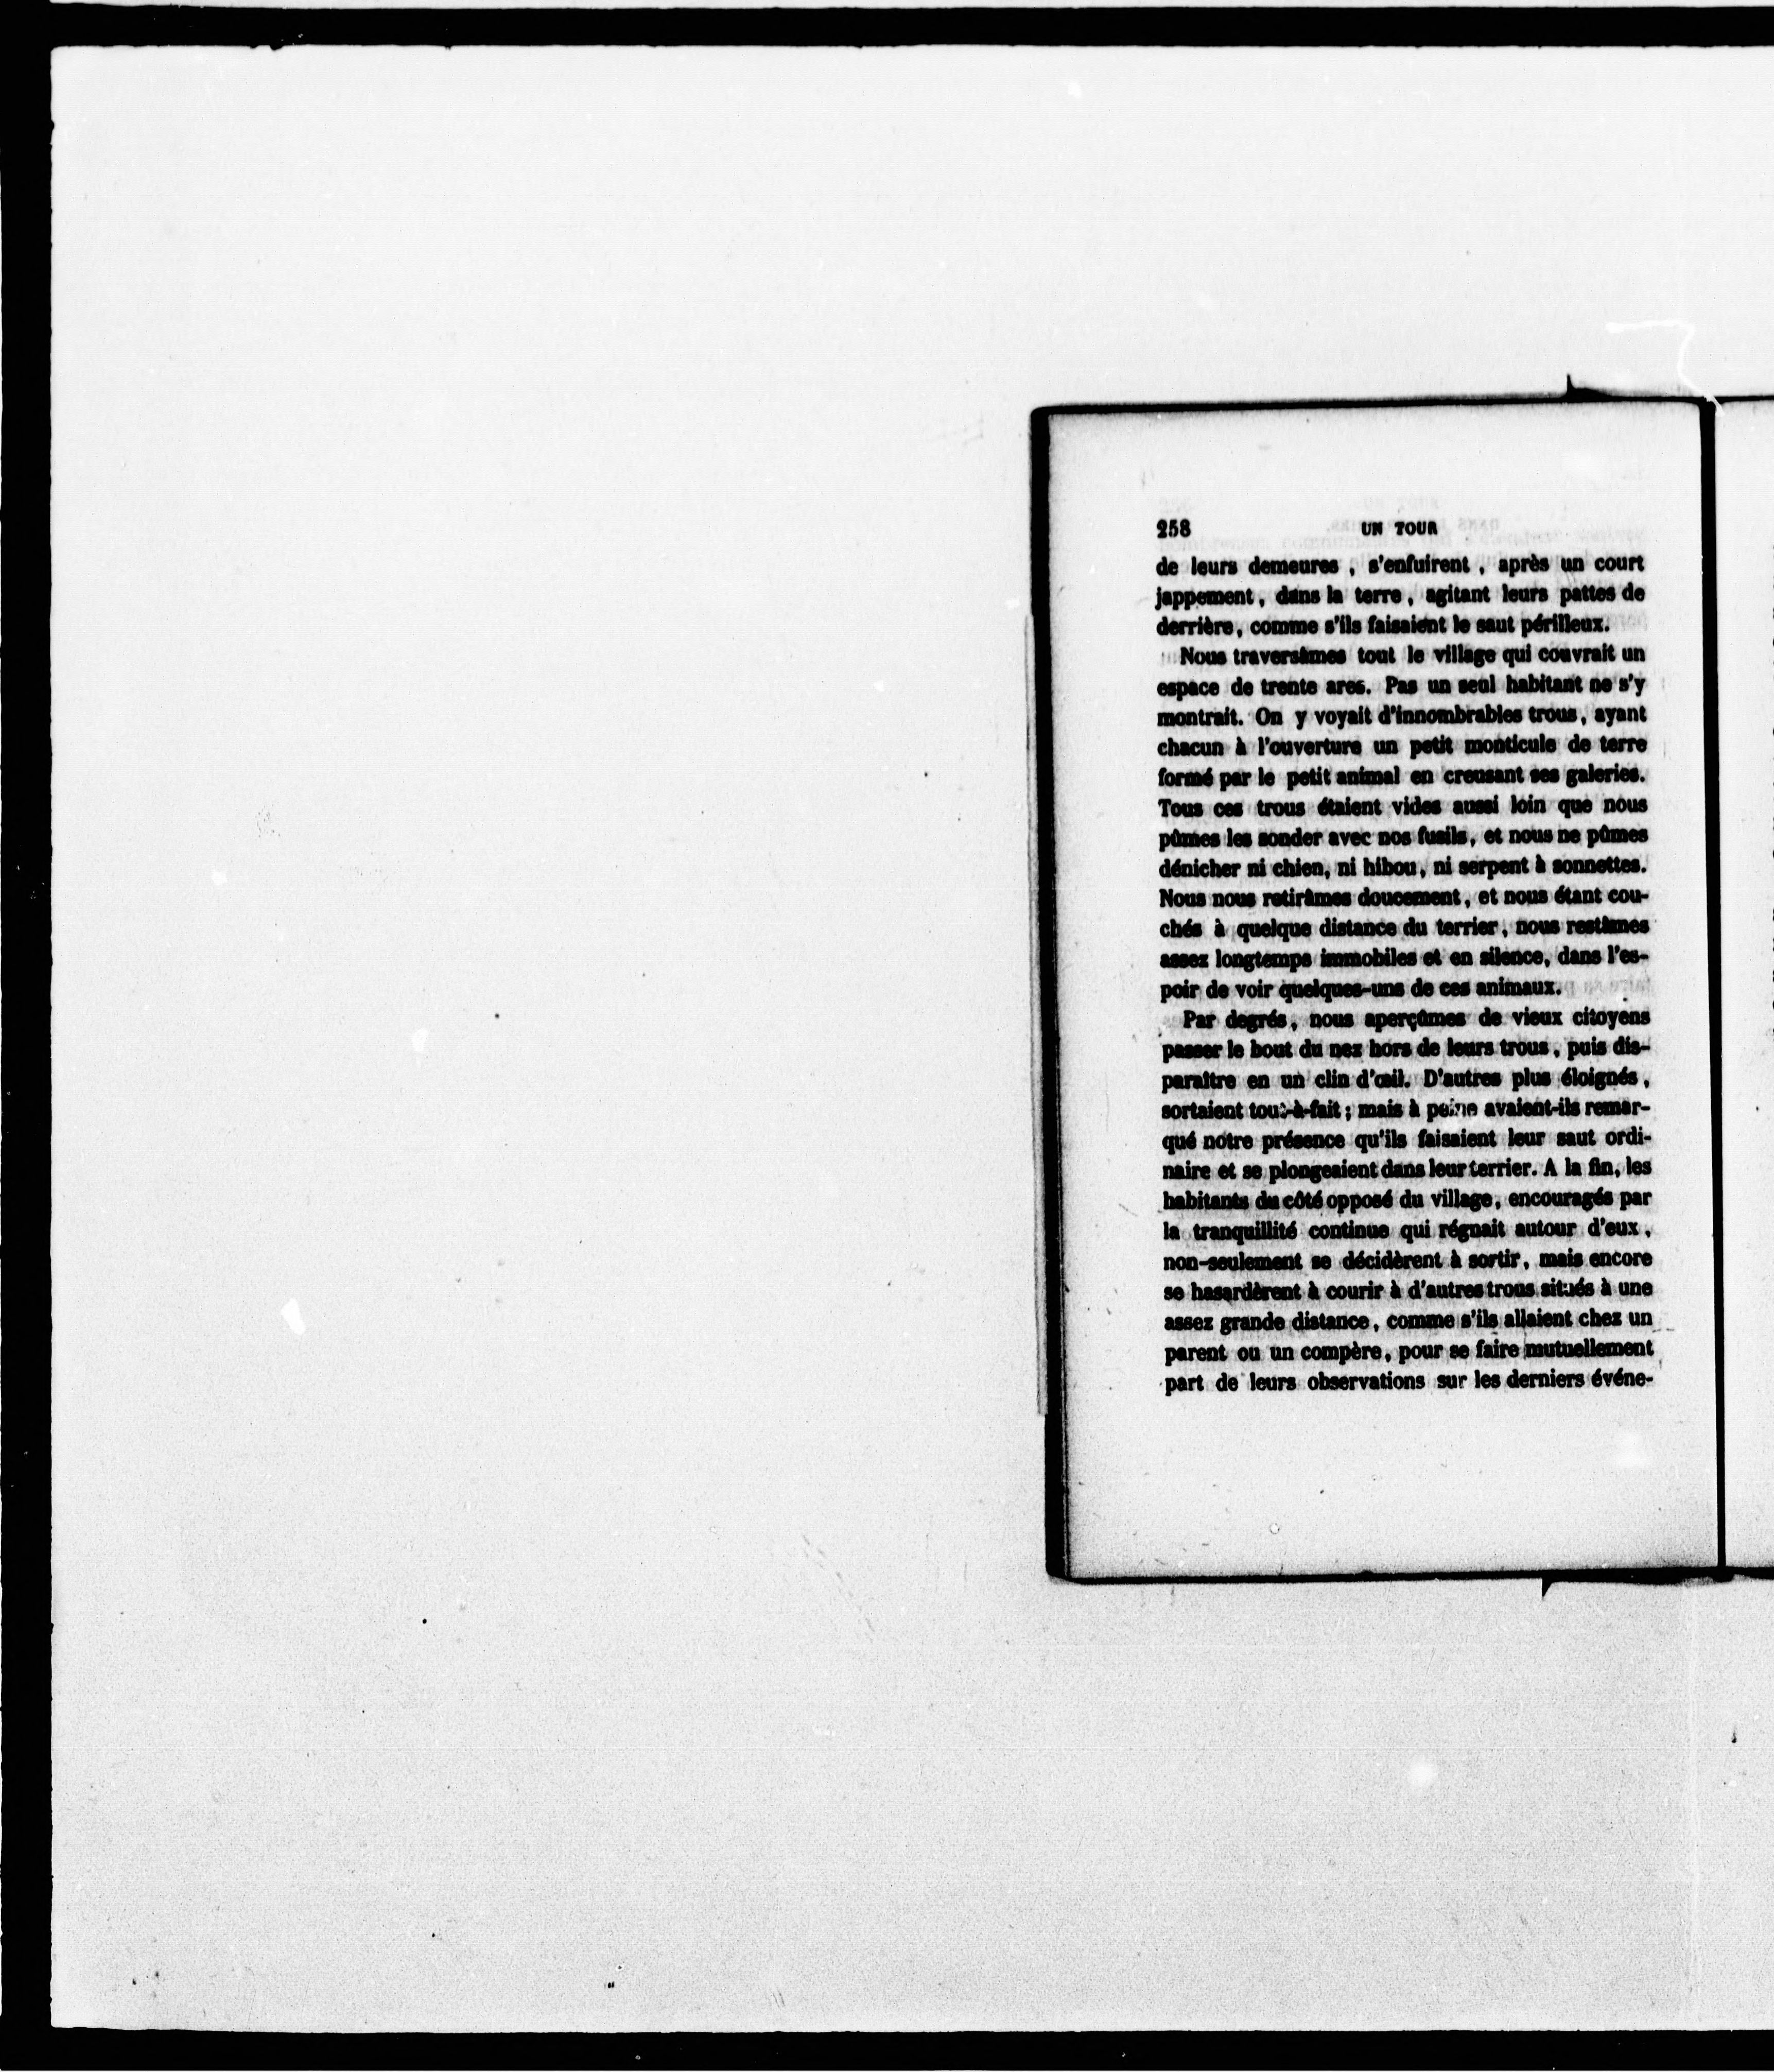 258 UN TOUR
de leurs demeures , s'enfuirent , après un court
jappement, dans la terre, agitant leurs pattes de
derrière, comme s'ils faisaient le saut périlleux.
Nous traversâmes tout le village qui couvrait un
espace de trente ares. Pas un seul habitant ne s'y
montrait. On y voyait d'innombrables trous, ayant
chacun à l'ouverture un petit monticule de terre
formé par le petit animal en creusant ses galeries.
Tous ces trous étaient vides aussi loin que nous
pûmes les sonder avec nos fusils, et nous ne pûmes
dénicher ni chien, ni hibou, ni serpent à sonnettes.
Nous nous retirâmes doucement, et nous étant cou-
chés à quelque distance du terrier, nous restâmes
assez longtemps immobiles et en silence, dans l'es-
poir de voir quelques-uns de ces animaux.
Par degrés, nous aperçûmes de vieux citoyens
passer le bout du nez hors de leurs trous, puis dis-
paraître en un clin d'œil. D'autres plus éloignés,
sortaient tout-à-fait ; mais à peine avaient-ils remar-
qué notre présence qu'ils faisaient leur saut ordi-
naire et se plongeaient dans leur terrier. A la fin, les
habitants du côté opposé du village, encouragés par
la tranquillité continue qui régnait autour d'eux,
non-seulement se décidèrent à sortir, mais encore
se hasardèrent à courir à d'autres trous situés à une
assez grande distance, comme s'ils allaient chez un
parent ou un compère, pour se faire mutuellement
part de leurs observations sur les derniers événe-